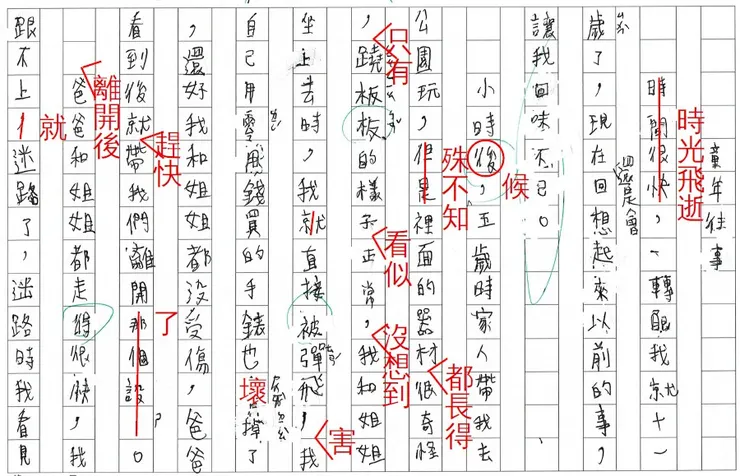 童年往事
時間很快,一轉眼我就十一
時光飛逝
歲了,現在回想起來以前的事,
還是會
讓我回味不已。
小時後,五歲時家人帶我去
候
公園玩,但是裡面的器材很奇怪
殊不知
都長得
,蹺板板的樣子正常,我和姐姐
只有
看似
沒想到
坐上去時,我就直接被彈飛,我
害
自己用零用錢買的手錶也 掉了
壞
,還好我和姐姐都沒受傷,爸爸
看到後就帶我們離開那個設。
趕快
了
爸爸和姐姐都走得很快,我
離開後
跟不上,迷路了,迷路時我看見
就